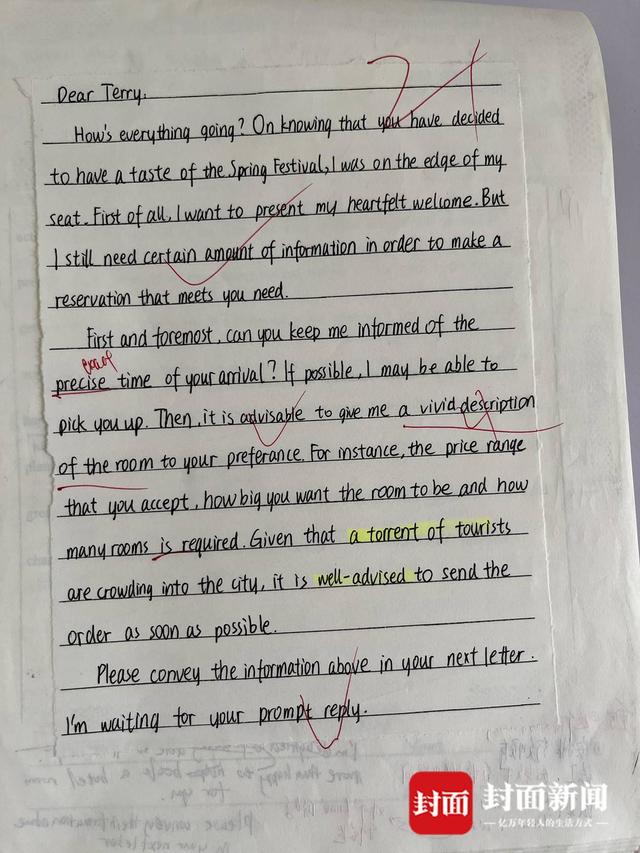 21
Dear Terry,
How's everything going? On knowing that you have decided
to have a taste of the Spring Festival, I was on the edge of my
seat. First of all, I want to present my heartfelt welcome. But
I still need certain amount of information in order to make a
reservation that meets you need.
First and foremost, can you keep me informed of the
exact
precise time of your arrival? If possible, I may be able to
pick you up. Then, it is advisable to give me a vivid description
of the room to your preferance. For instance, the price range
that you accept, how big you want the room to be and how
many rooms is required. Given that a torrent of tourists
are crowding into the city, it is well-advised to send the
order as soon as possible.
Please convey the information above in your next letter.
I'm waiting for your prompt reply.
封面 封面新闻
亿万年轻人的生活方式